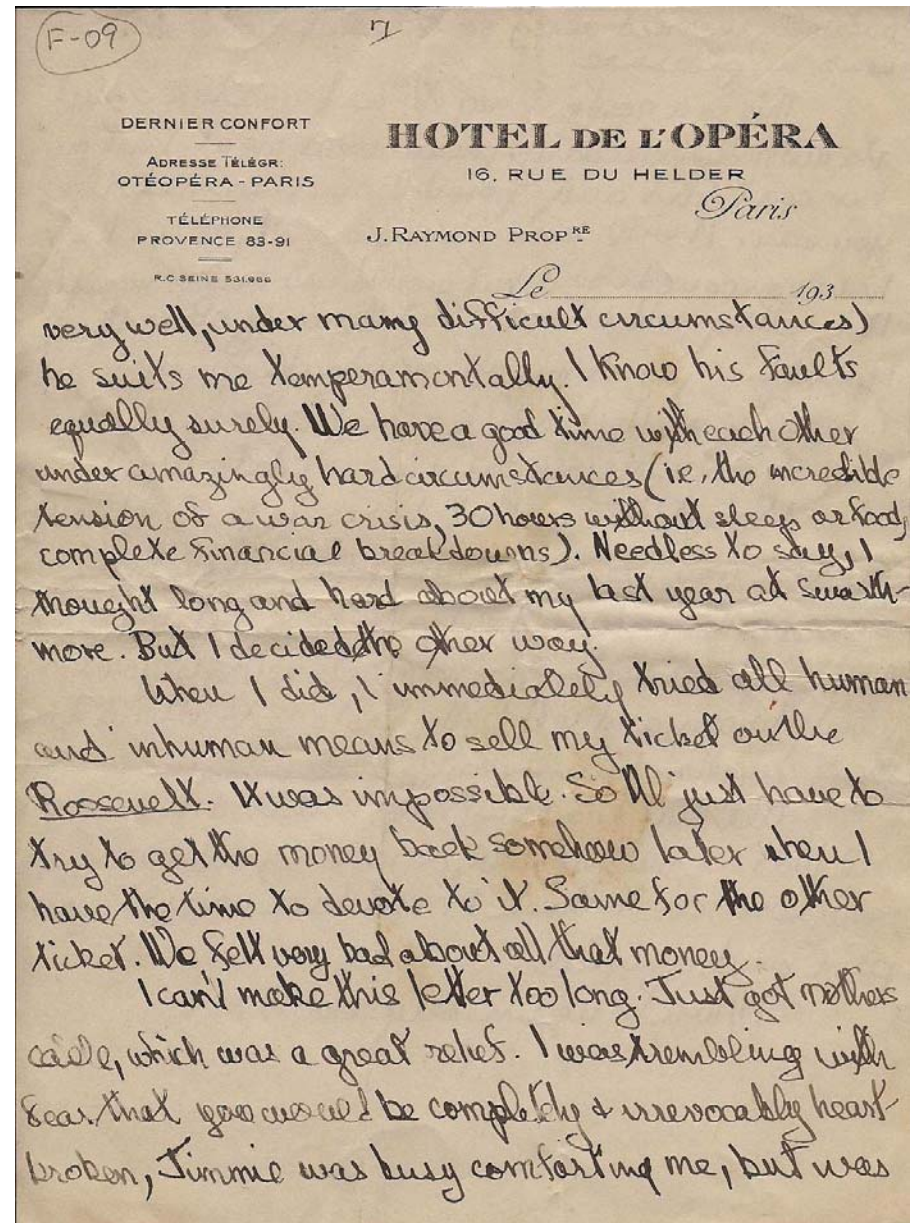 F-09
7
DERNIER CONFORT
ADRESSE TÉLÉGR:
OTÉOPÉRA - PARIS
TÉLÉPHONE
PROVENCE 83-91
R.C. SEINE 531.966
HOTEL DE L'OPÉRA
16, RUE DU HELDER
Paris
J. RAYMOND PROPRE
Le 193
very well, under many difficult circumstances)
he suits me temperamentally. I know his faults
equally surely. We have a good time with each other
under amazingly hard circumstances (i.e., the incredible
tension of a war crisis, 30 hours without sleep or food,
complete financial breakdowns). Needless to say, I
thought long and hard about my last year at Swarth-
more. But I decided the other way.
When I did, I immediately tried all human
and inhuman means to sell my ticket on the
Roosevelt. It was impossible. So I'll just have to
try to get the money back somehow later when I
have the time to devote to it. Same for the other
ticket. We felt very bad about all that money.
I can't make this letter too long. Just got mothers
cable, which was a great relief. I was trembling with
fear that you would be completely & irrevocably heart-
broken, Jimmie was busy comforting me, but was